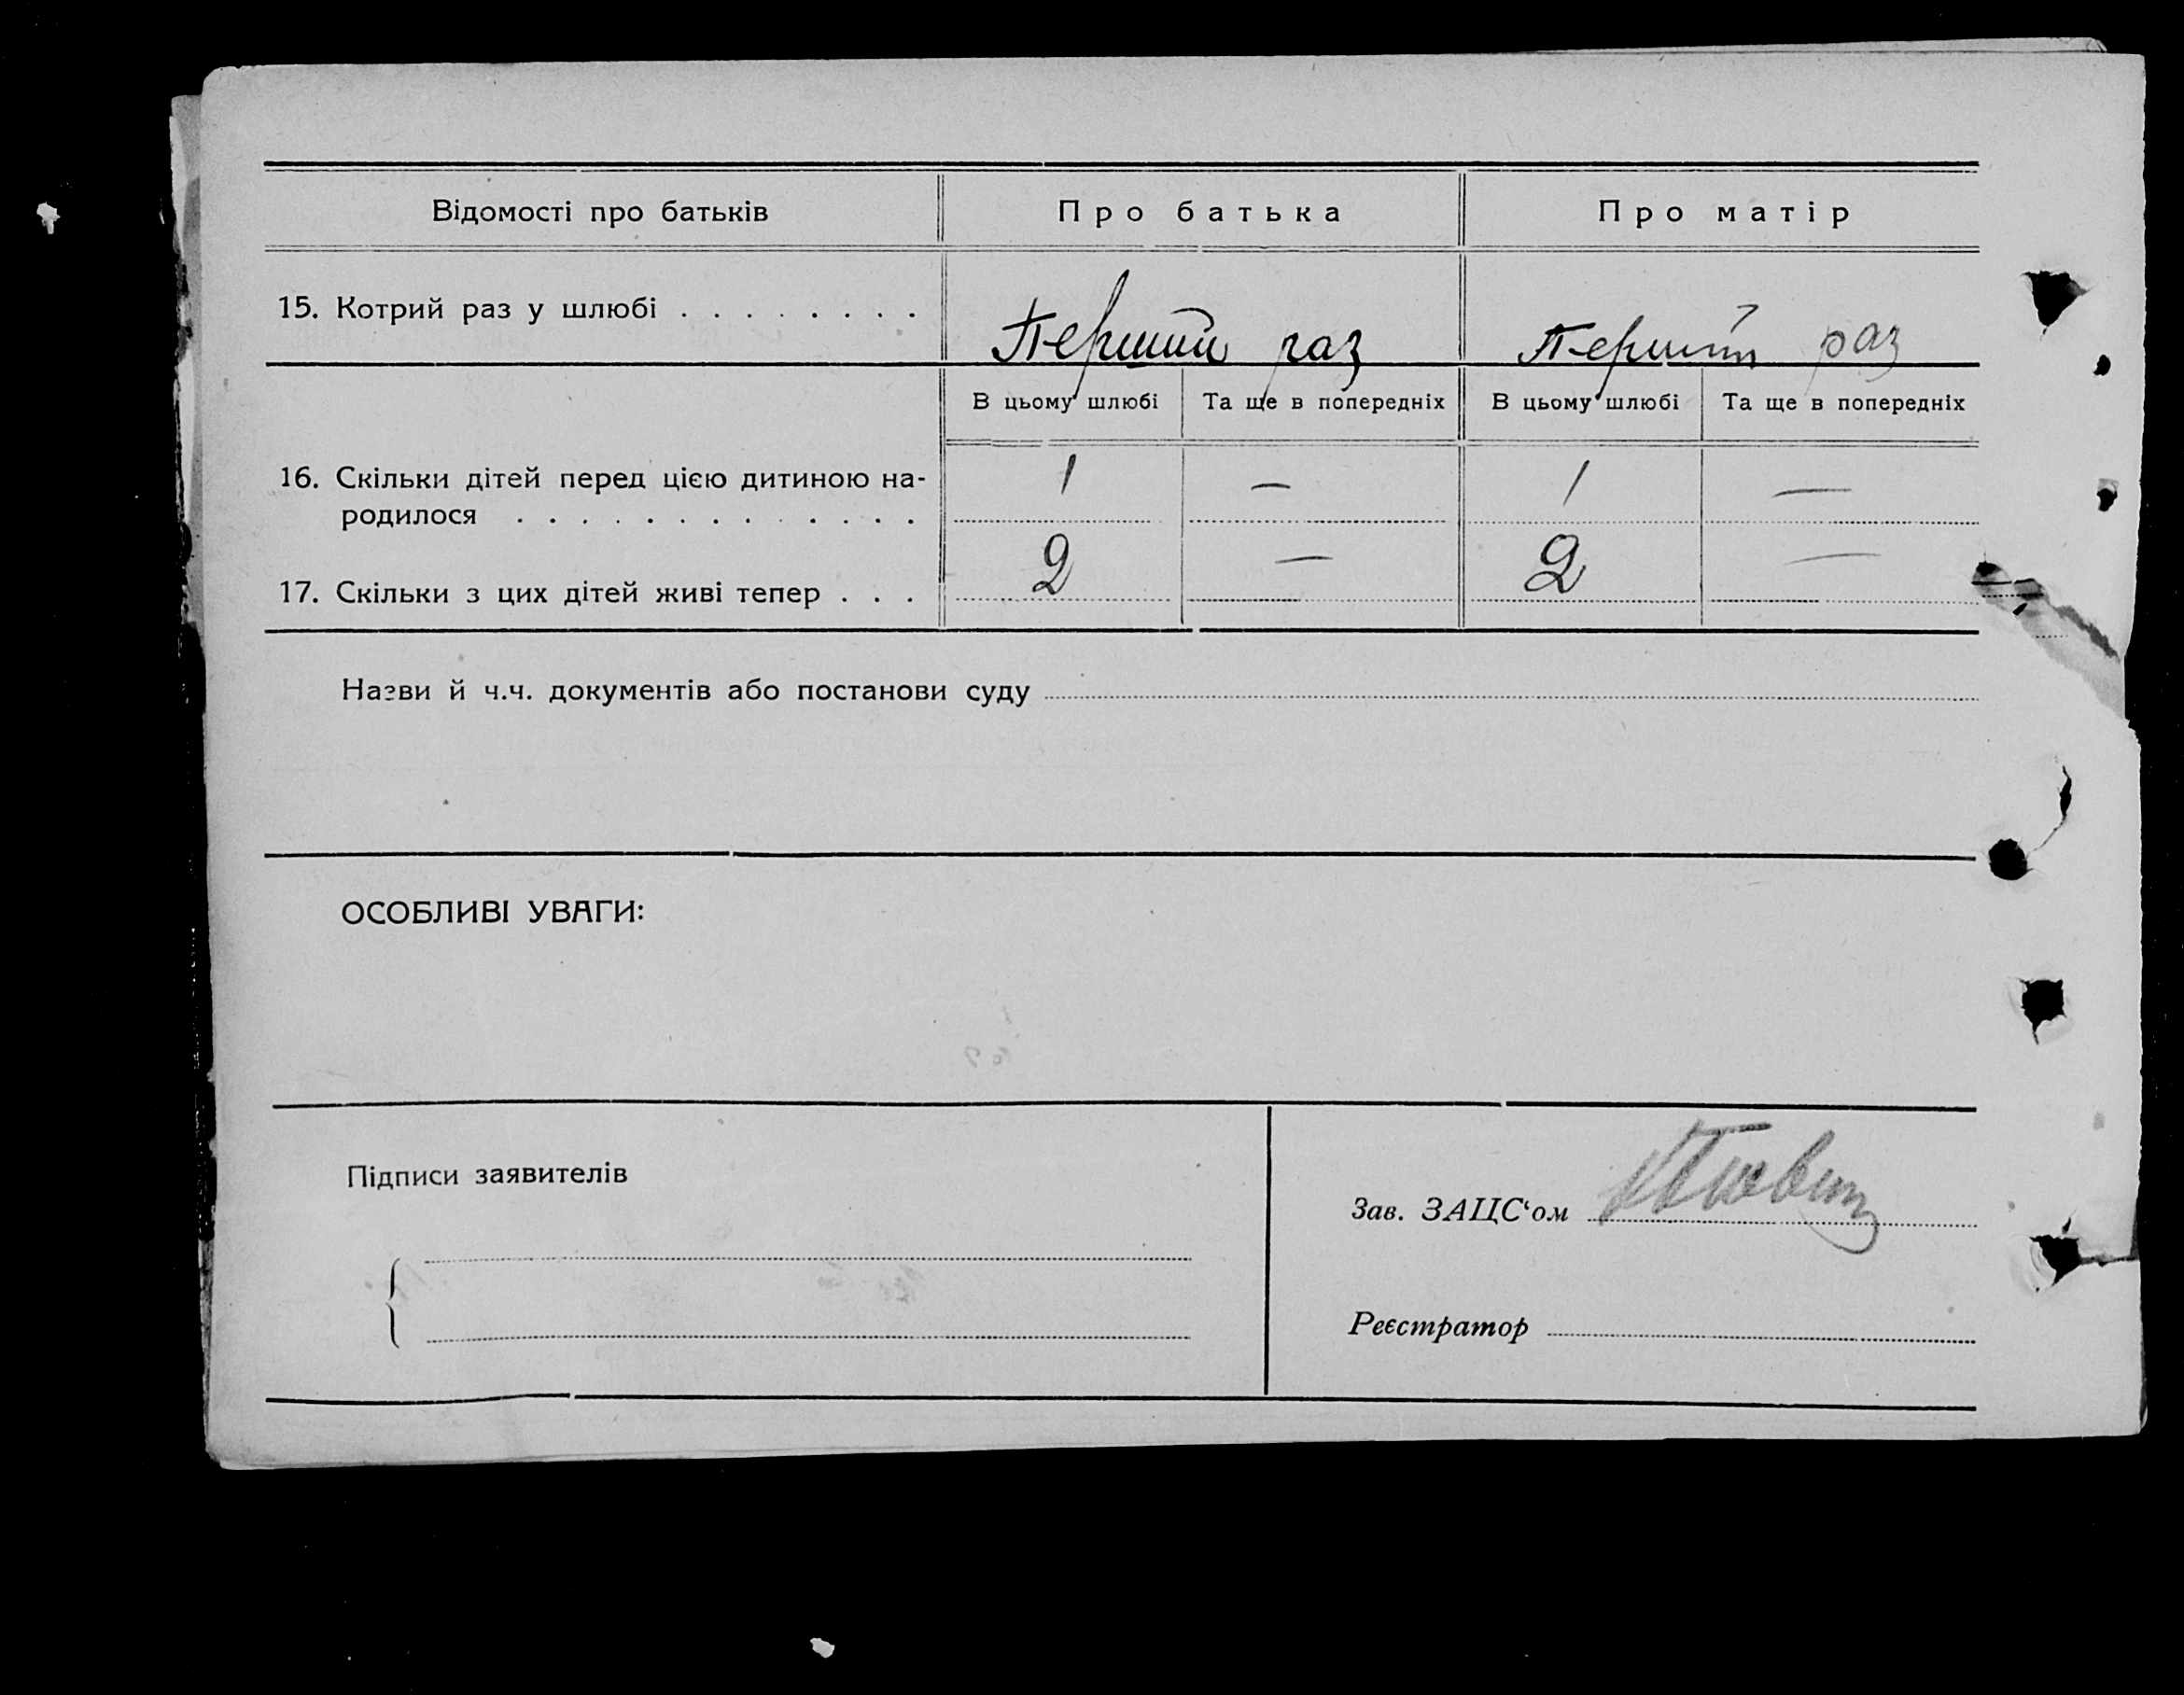 Відомості про батьків Про батька Про матір
15. Котрий раз у шлюбі . . . . . . . . Перший раз Перший раз
В цьому шлюбі Та ще в попередніх В цьому шлюбі Та ще в попередніх
16. Скільки дітей перед цією дитиною на- 1 — 1 —
родилося . . . . . . . . . . . . .
17. Скільки з цих дітей живі тепер . . . 2 — 2 —
Назви й ч.ч. документів або постанови суду
ОСОБЛИВІ УВАГИ:
Підписи заявителів
Зав. ЗАЦС'ом
Реєстратор